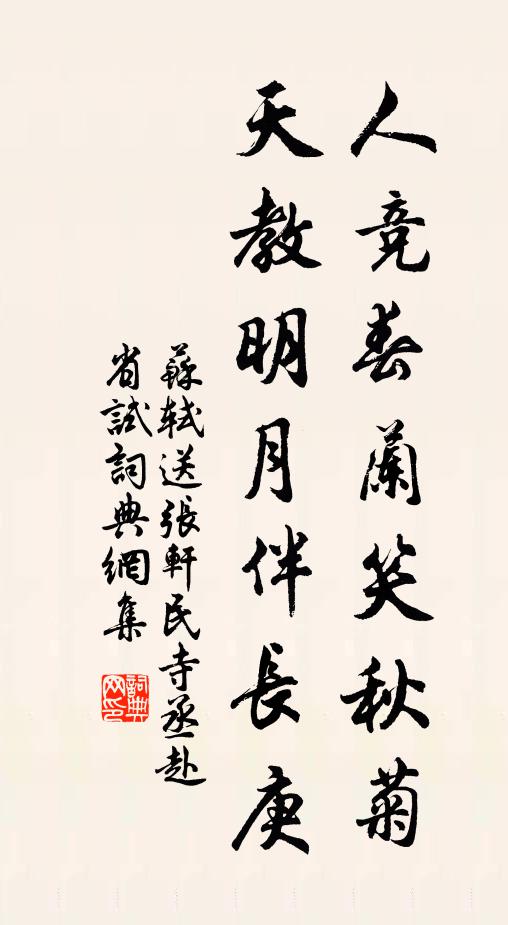 人竞春蘭笑秋菊
天教明月伴長庚
蘇軾送張軒民寺丞赴
省試詞典網集
詞典网印